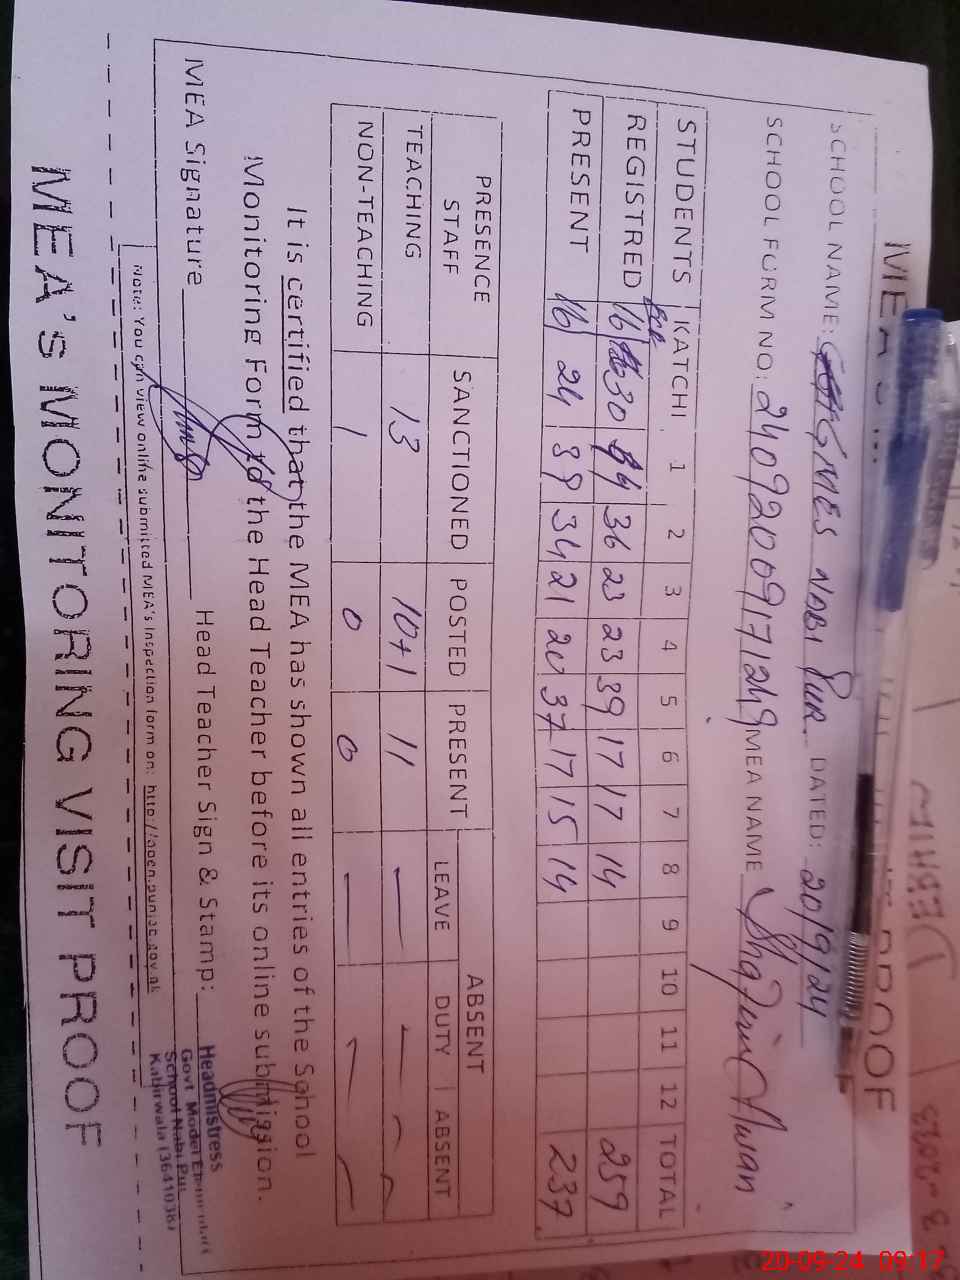 MEA'S
PROOF
SCHOOL NAME: GMES NABI PUR. DATED: 20/9/24
SCHOOL FORM NO: 24092009171249 MEA NAME Shafiul Awan
STUDENTS KATCHI 1 2 3 4 5 6 7 8 9 10 11 12 TOTAL
REGISTRED 16 30 44 36 23 23 39 17 17 14 259
PRESENT 16 24 39 34 21 20 37 17 15 14 237
PRESENCE STAFF SANCTIONED POSTED PRESENT ABSENT
LEAVE DUTY ABSENT
TEACHING 13 10+1 11 — — —
NON-TEACHING 1 0 0 — — —
It is certified that the MEA has shown all entries of the School
Monitoring Form to the Head Teacher before its online submission.
MEA Signature Head Teacher Sign & Stamp:
Headmistress
Govt Model Elementary
School Nabi Pur
Kabirwala (36410387
Note: You can view online submitted MEA's Inspection form on: http://open.punjab.gov.pk
MEA'S MONITORING VISIT PROOF
DEBHIM
20-09-24 09:17